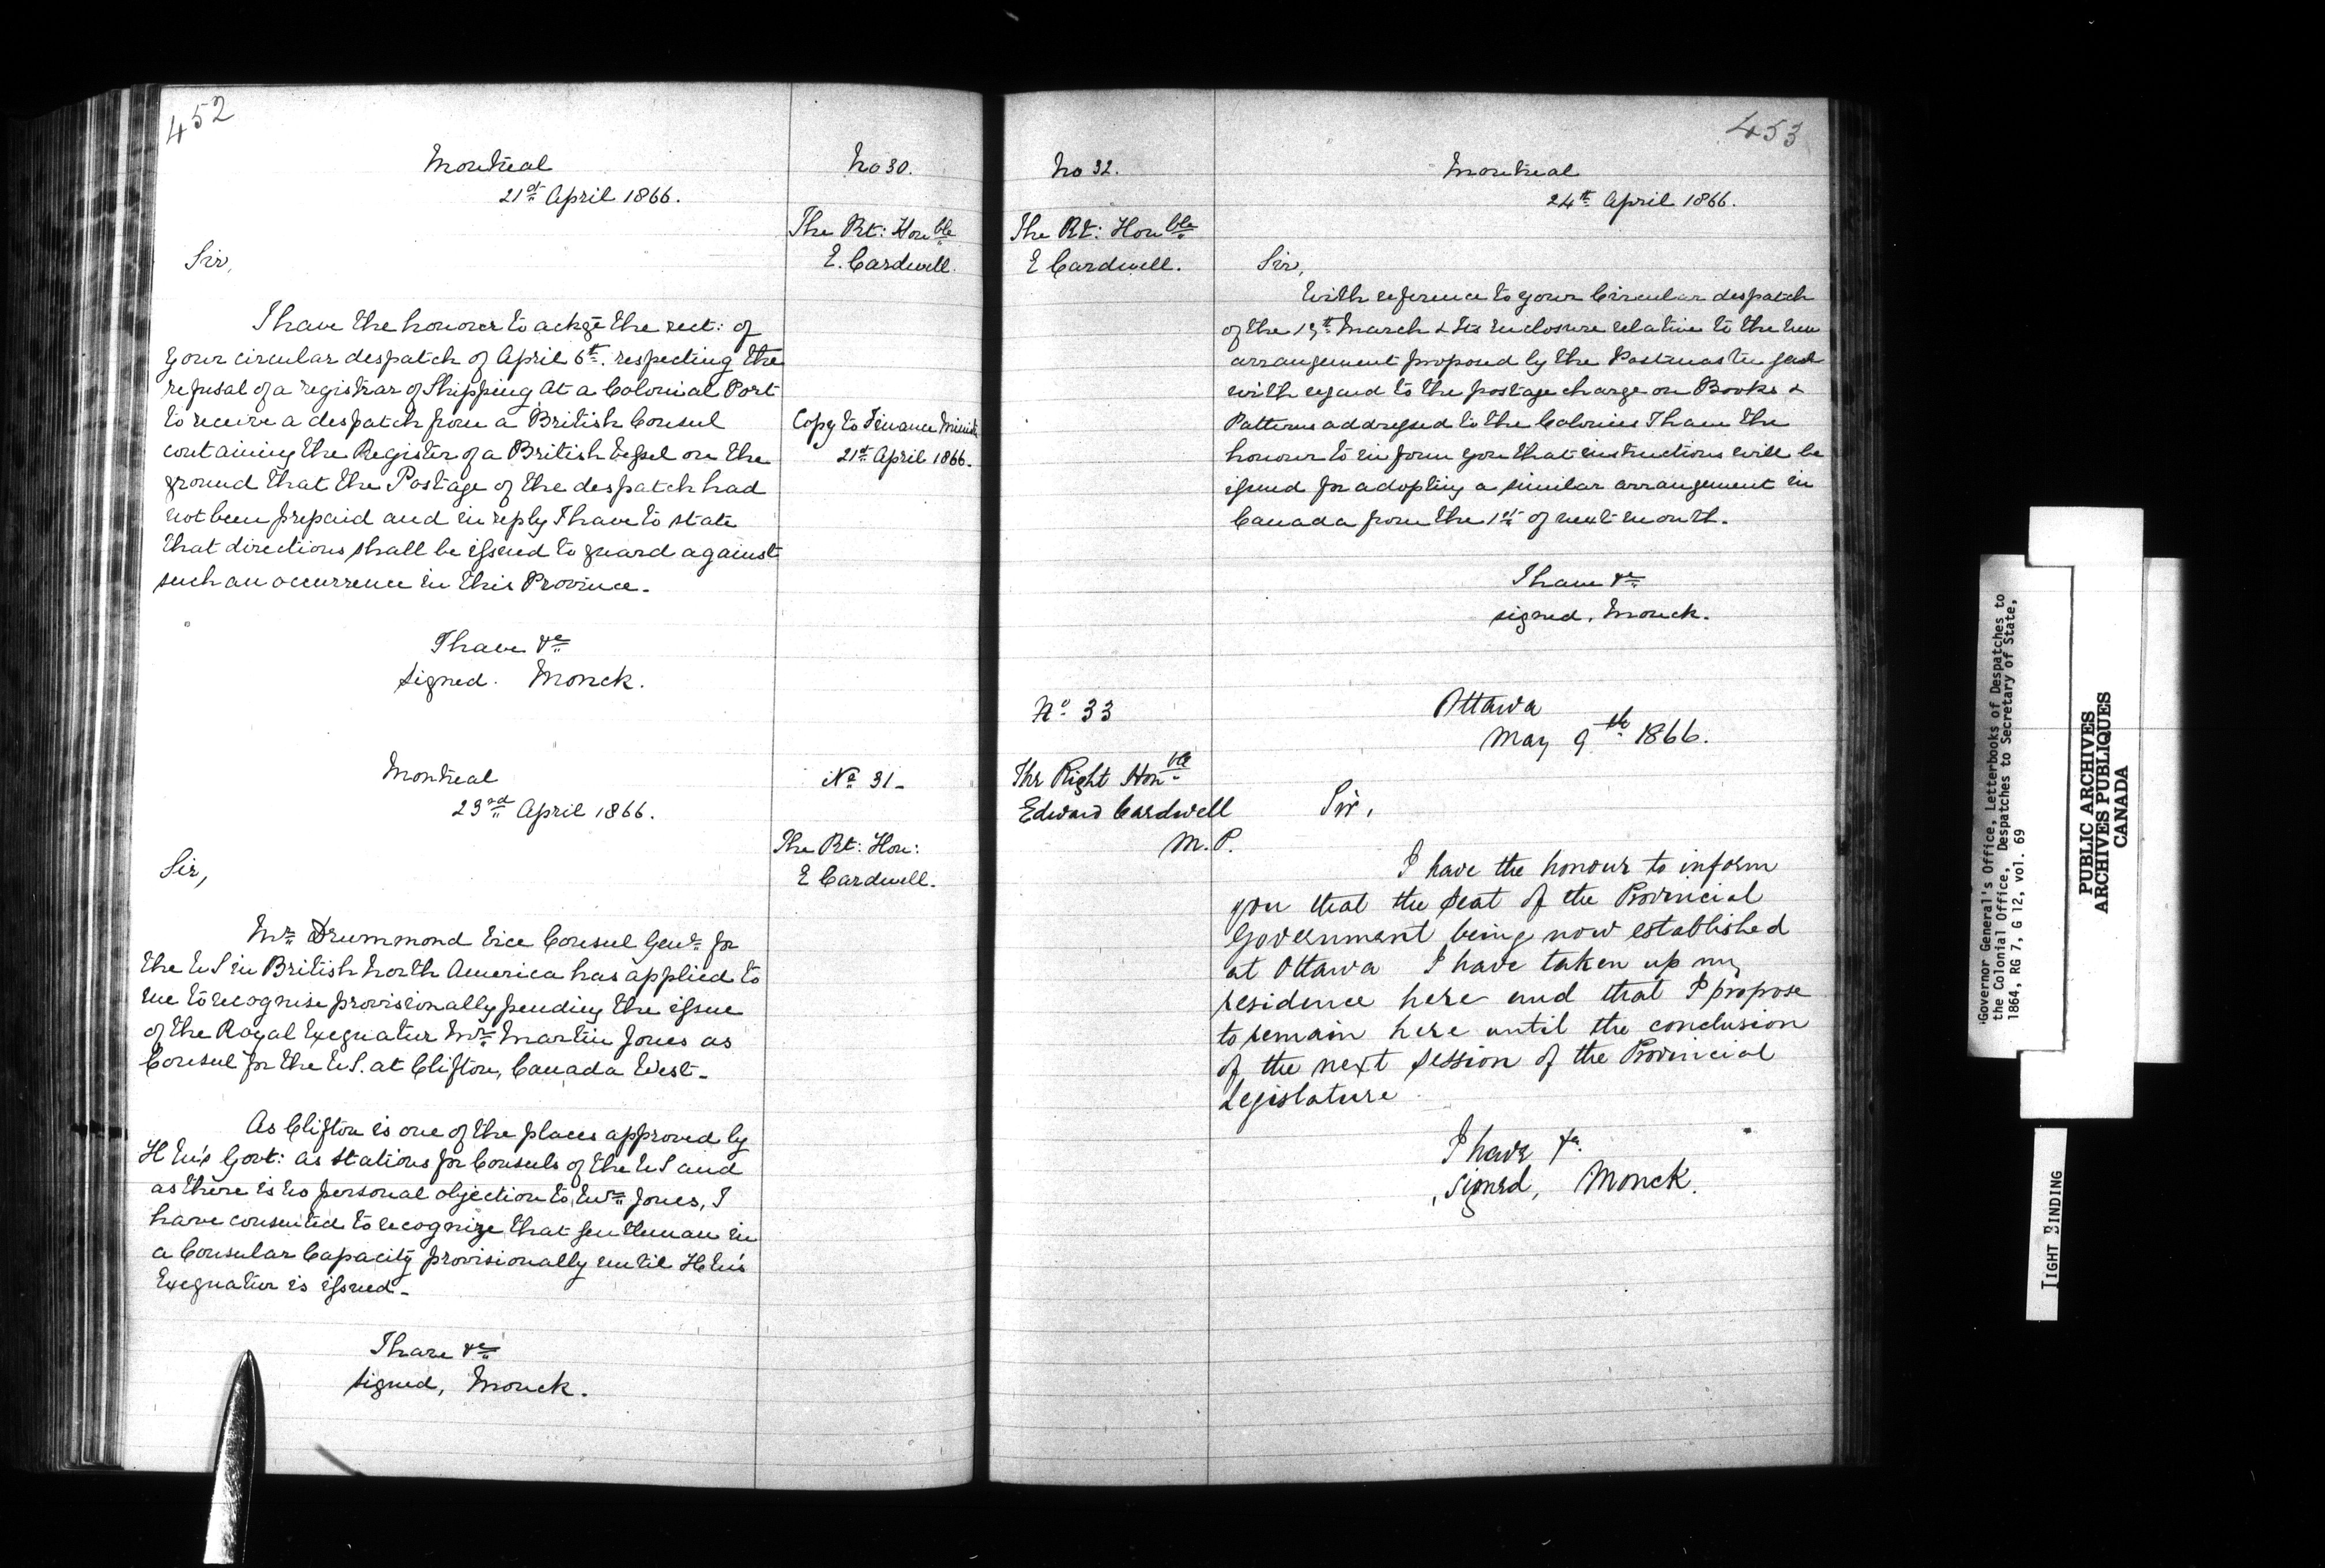 452
Montreal
21st April 1866.
No 30.
The Rt: Honble
E. Cardwell.
Sir,
I have the honour to ackge the rect: of
your circular despatch of April 6th. respecting the
refusal of a registrar of Shipping at a Colonial Port
to receive a despatch from a British Consul
containing the Register of a British Vessel on the
ground that the Postage of the despatch had
not been prepaid and in reply I have to state
that directions shall be issued to guard against
such an occurrence in this Province.
Copy to Finance Minist
21st April 1866.
I have &c
signed. Monck.
Montreal
23rd April 1866.
No 31
The Rt: Hon:
E Cardwell.
Sir,
Mr Drummond Vice Consul Genl for
the US in British North America has applied to
me to recognise provisionally pending the issue
of the Royal Exequatur Mr Martin Jones as
Consul for the US. at Clifton, Canada West.
As Clifton is one of the places approved by
H M's Govt: as stations for Consuls of the US and
as there is no personal objection to Mr Jones, I
have consented to recognize that gentleman in
a Consular Capacity provisionally until H M's
Exequatur is issued.
I have &c
signed, Monck.
453
No 32.
The Rt: Honble
E Cardwell.
Montreal
24th April 1866.
Sir,
With reference to your Circular despatch
of the March & its enclosure relative to the new
arrangement proposed by the Postmaster
with regard to the postage charge on Books &
Patterns addressed to the Colonies I have the
honour to inform you that instructions will be
issued for adopting a similar arrangement in
Canada from the 1st of next month.
I have &c
signed. Monck.
No 33
The Right Honble
Edward Cardwell
M.P.
Ottawa
May 9th 1866.
Sir,
I have the honour to inform
you that the seat of the Provincial
Government being now established
at Ottawa I have taken up my
residence here and that I propose
to remain here until the conclusion
of the next session of the Provincial
Legislature.
I have &c.
signed, Monck.
Governor General's Office, Letterbooks of Despatches to
the Colonial Office, Despatches to Secretary of State,
1864, RG 7, G 12, vol. 69
PUBLIC ARCHIVES
ARCHIVES PUBLIQUES
CANADA
TIGHT BINDING